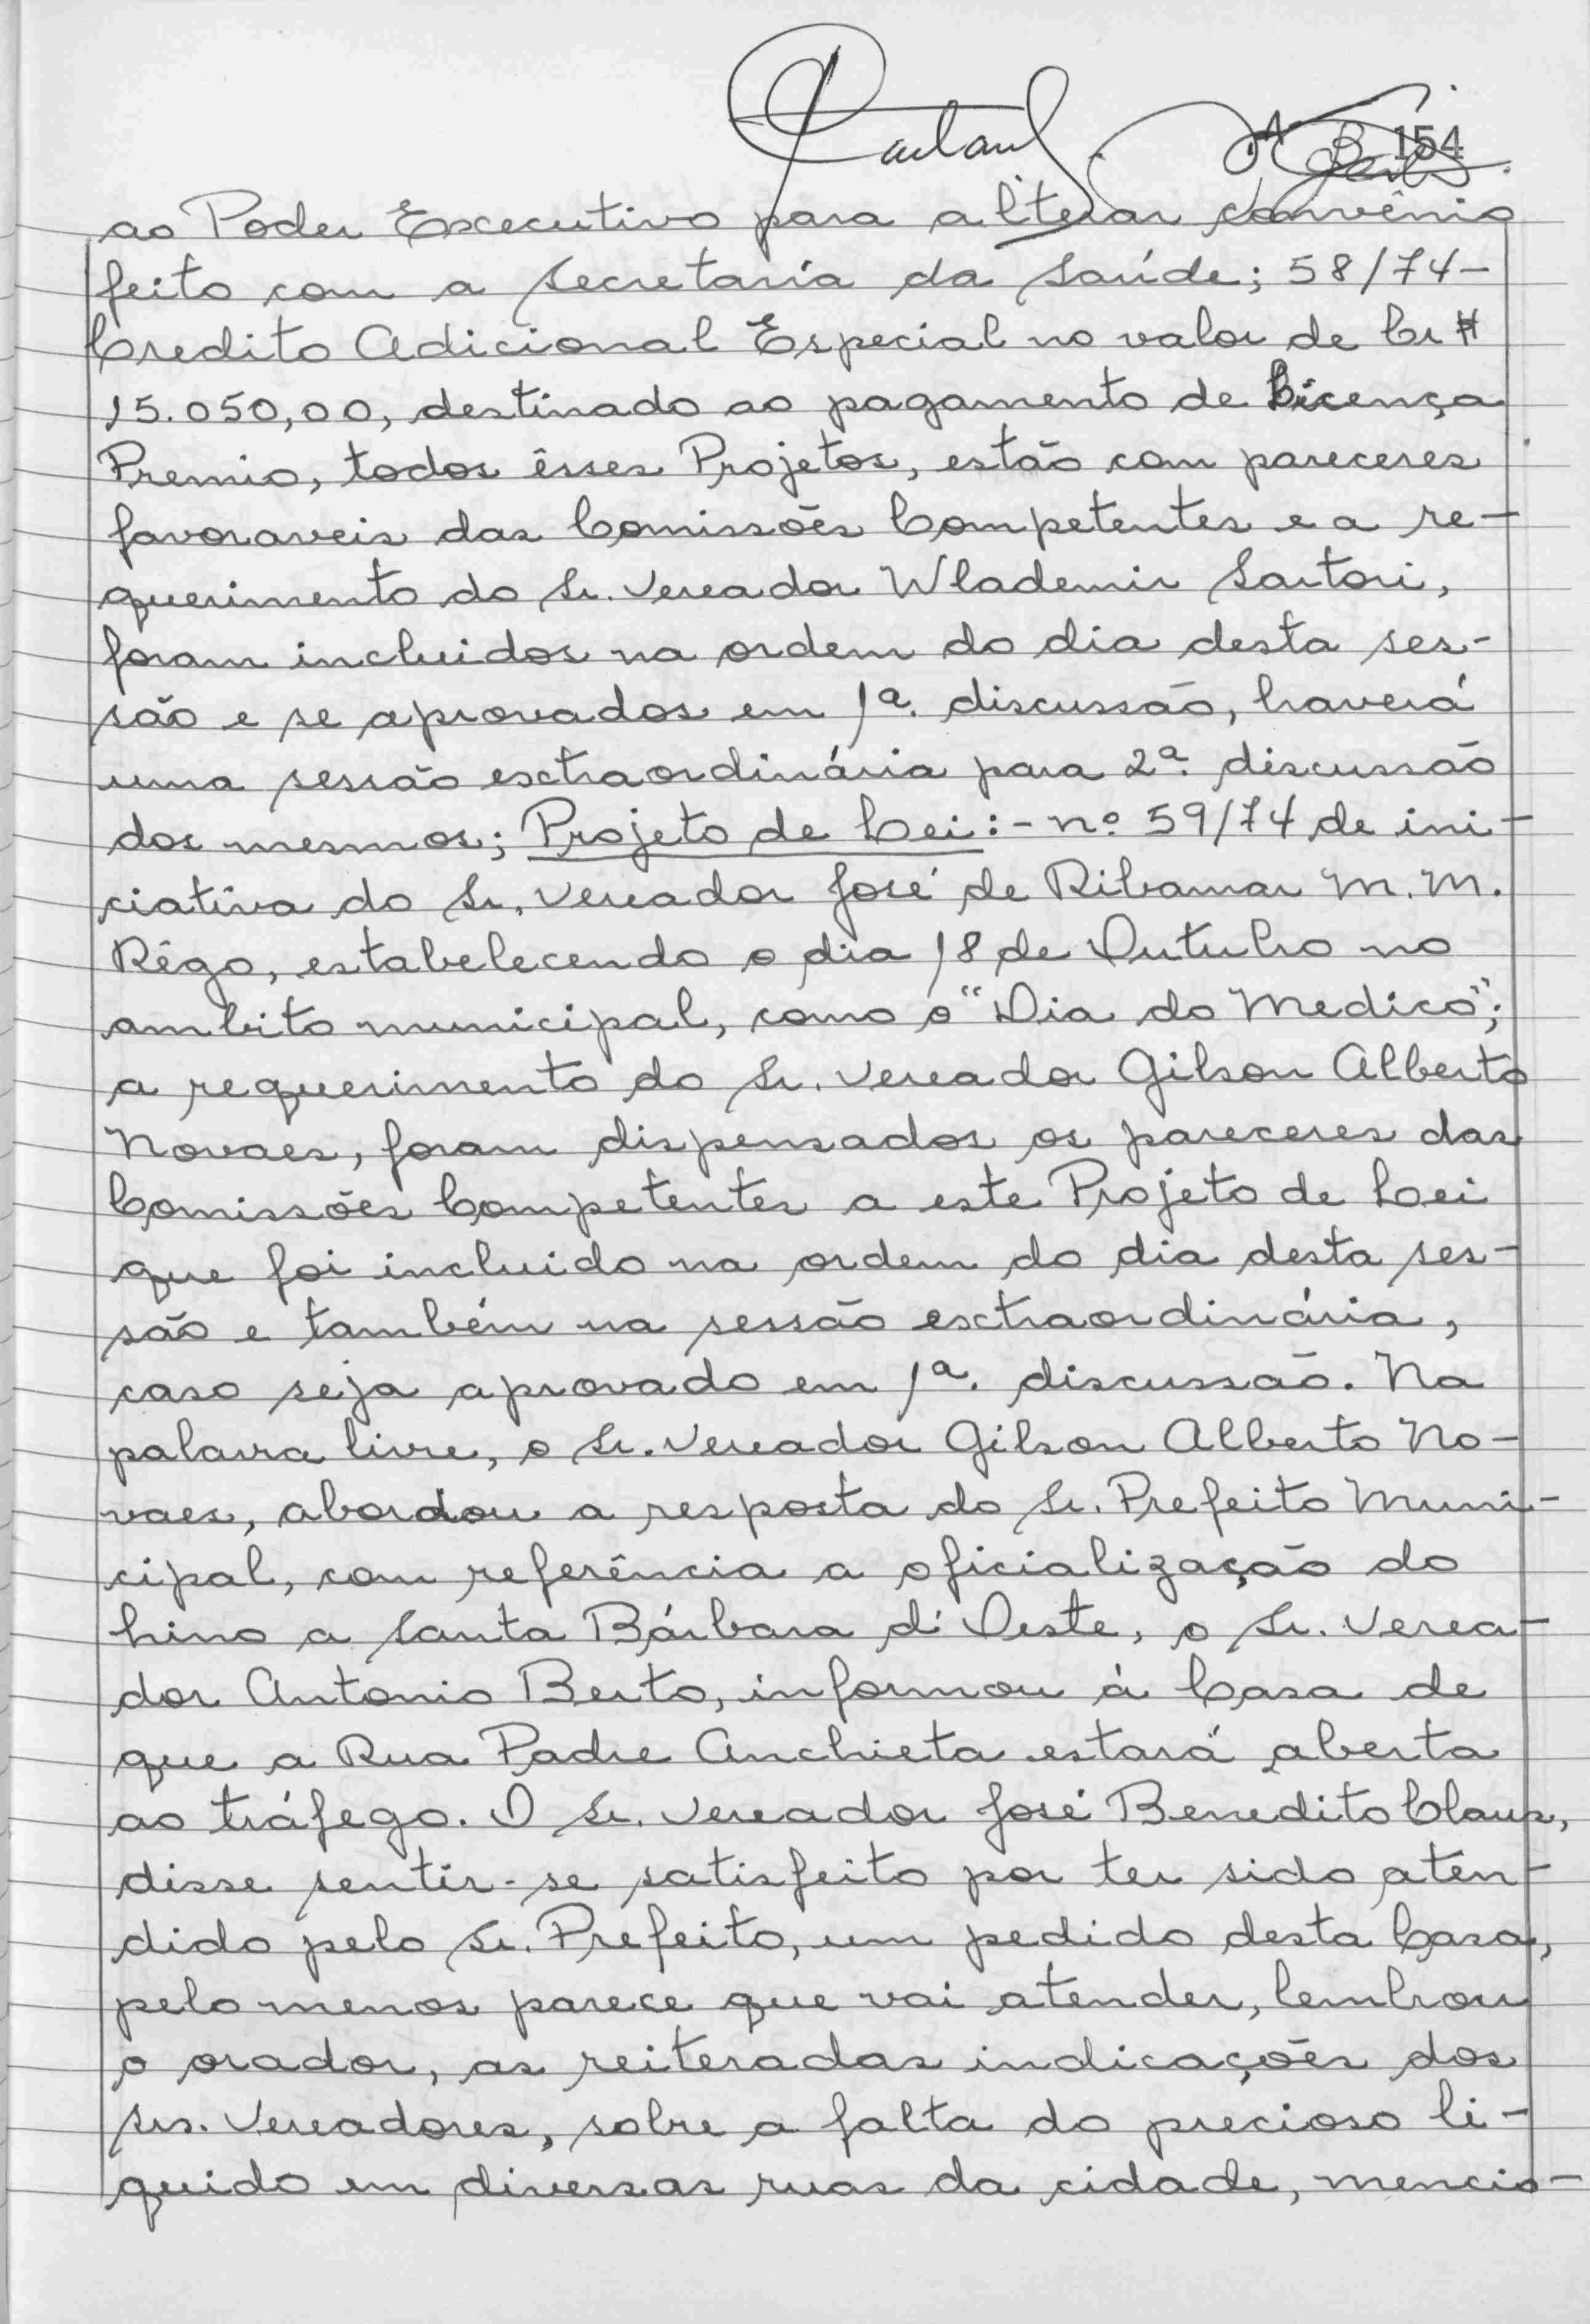 154
ao Poder Executivo para alterar convênio
feito com a Secretaria da Saúde; 58/74-
Credito Adicional Especial no valor de Cr$
15.050,00, destinado ao pagamento de Licença
Premio, todos êsses Projetos, estão com pareceres
favoraveis das Comissões Competentes e a re-
querimento do Sr. Vereador Wlademir Sartori,
foram incluidos na ordem do dia desta ses-
são e se aprovados em 1ª. discussão, haverá
uma sessão extraordinária para 2ª. discussão
dos mesmos; Projeto de Lei:- nº 59/74 de ini-
ciativa do Sr. Vereador José de Ribamar M. M.
Rêgo, estabelecendo o dia 18 de Outubro no
ambito municipal, como o "Dia do Medico";
a requerimento do Sr. Vereador Gilson Alberto
Novaes, foram dispensados os pareceres das
Comissões Competentes a este Projeto de Lei
que foi incluido na ordem do dia desta ses-
são e também na sessão extraordinária,
caso seja aprovado em 1ª. discussão. Na
palavra livre, o Sr. Vereador Gilson Alberto No-
vaes, abordou a resposta do Sr. Prefeito Muni-
cipal, com referência a oficialização do
hino a Santa Bárbara d'Oeste, o Sr. Verea-
dor Antonio Berto, informou à Casa de
que a Rua Padre Anchieta estará aberta
ao tráfego. O Sr. Vereador José Benedito Claus,
disse sentir-se satisfeito por ter sido aten-
dido pelo Sr. Prefeito, um pedido desta Casa,
pelo menos parece que vai atender, lembrou
o orador, as reiteradas indicações dos
Srs. Vereadores, sobre a falta do precioso li-
quido em diversas ruas da cidade, mencio-